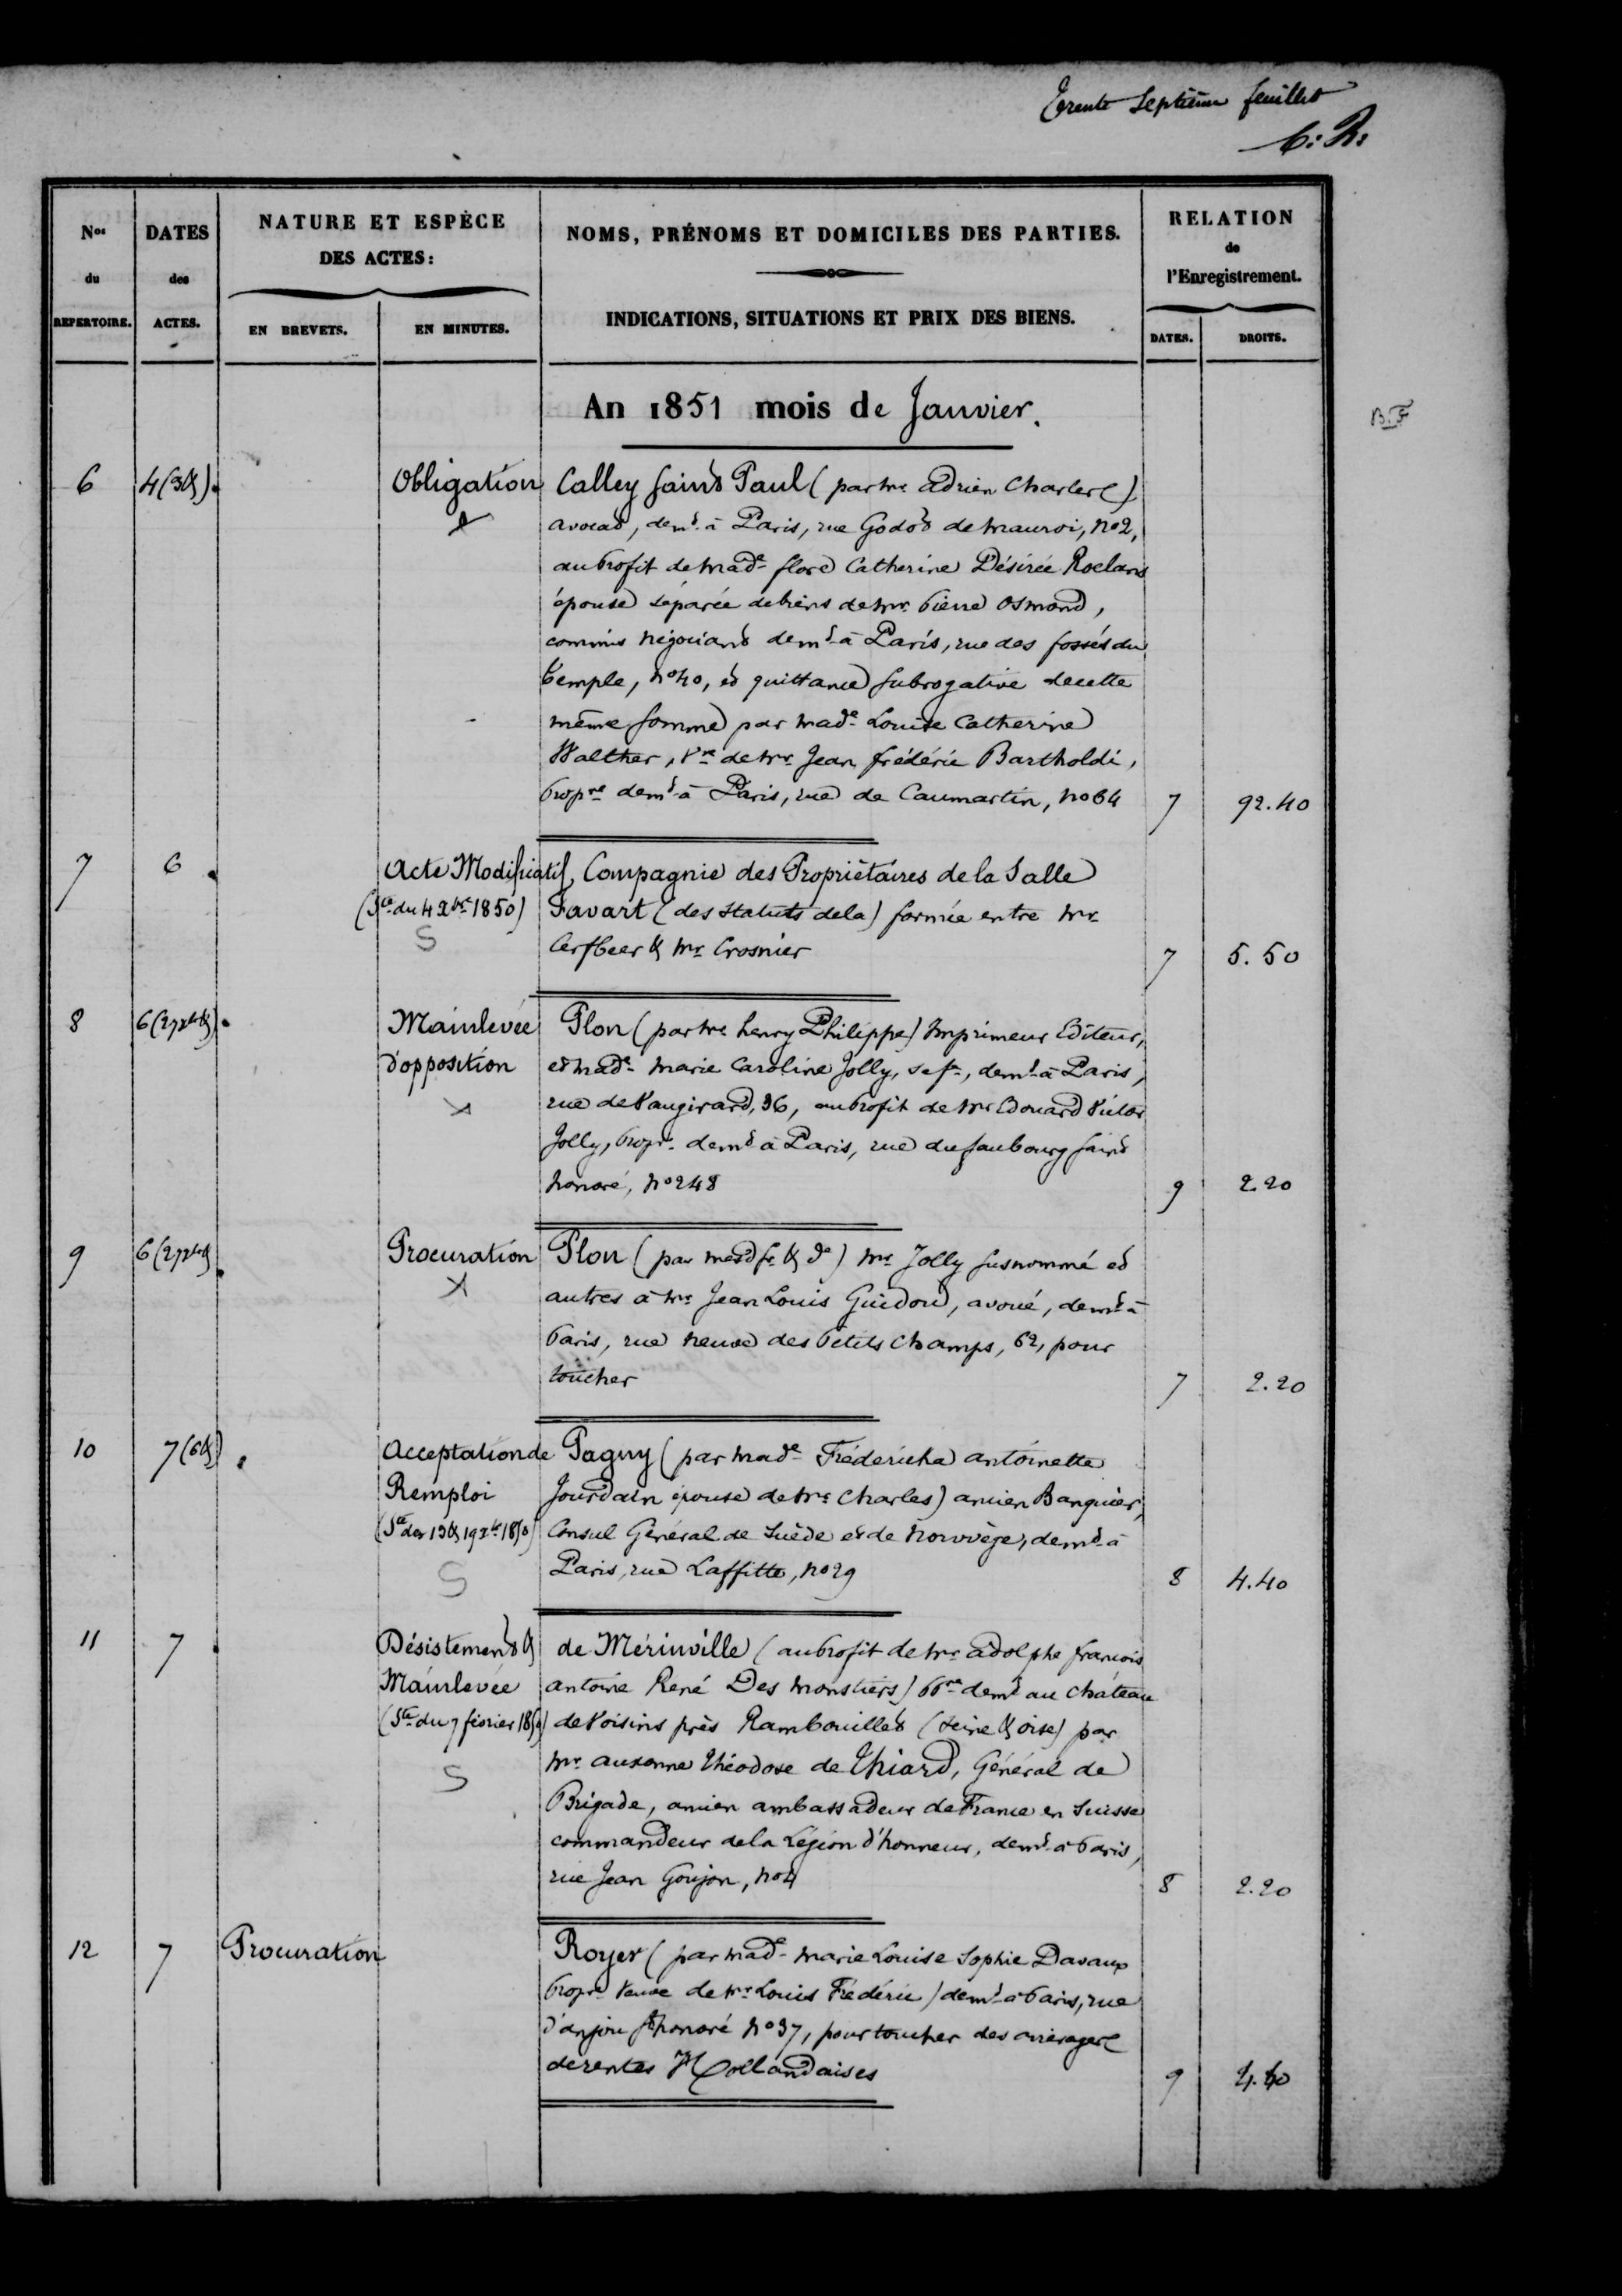 Trente Septième feuillet
C. R.
Nos du REPERTOIRE.
DATES des ACTES.
NATURE ET ESPÈCE DES ACTES:
EN BREVETS.
EN MINUTES.
NOMS, PRÉNOMS ET DOMICILES DES PARTIES.
INDICATIONS, SITUATIONS ET PRIX DES BIENS.
RELATION de l'Enregistrement.
DATES.
DROITS.
An 1851 mois de Janvier.
B.F
6 4 (3&) Obligation Calley Saint Paul (par Mr. Adrien Charles)
avocat, demt. à Paris, rue Godot de Mauroi, No 2,
au profit de Made. flore Catherine Désirée Roelans
épouse séparée de biens de Mr. Pierre Osmond,
commis négociant demt. à Paris, rue des fossés du
Temple, No 40, et quittance subrogative de cette
même somme par Made. Louise Catherine
Walther, Vve. de Mr. Jean frédéric Bartholdi,
propre. demt. à Paris, rue de Caumartin, No 64 7 92.40
7 6 Acte Modificatif, Compagnie des Propriétaires de la Salle
(Ste. du 4 Xbre 1850) Favart (des statuts de la) formée entre Mr.
S Cerfbeer & Mr. Crosnier 7 5.50
8 6 (27 Xbre &) Mainlevée Plon (par Mr. henry Philippe) Imprimeur Editeur,
d'opposition et Made. Marie Caroline Jolly, sa fe., demt. à Paris,
rue de Vaugirard, 36, au profit de Mr. Edouard Victor
Jolly, propre. demt. à Paris, rue du faubourg saint
honoré, No 248 9 2.20
9 6 (27 Xbre & Procuration Plon (par Mesd. Sr. & De) Mr. Jolly susnommé et
autres à Mr. Jean Louis Guidou, avoué, demt. à
Paris, rue neuve des Petits Champs, 62, pour
toucher 7 2.20
10 7 (6&) Acceptation de Pagny (par Made. Frédéricka antoinette
Remploi Jourdain épouse de Mr. Charles) ancien Banquier,
(Ste. des 13 & 19 Xbre 1850) Consul Général de Suède et de Norvège, demt. à
S Paris, rue Laffitte, No 29 8 4.40
11 7 Désistement & de Mérinville (au profit de Mr. adolphe françois
Mainlevée antoine René Des Monstiers) ppre. demt. au Château
(Ste. du 7 février 1850) de Voisins près Rambouillet (Seine & Oise) par
S Mr. auxonne Théodose de Thiard, Général de
Brigade, ancien ambassadeur de France en Suisse
commandeur de la Légion d'honneur, demt. à Paris,
rue Jean Goujon, No 4 8 2.20
12 7 Procuration Royer (par Made. Marie Louise Sophie Davaux
propre. Veuve de Mr. Louis Frédéric) demt. à Paris, rue
d'anjou St. honoré No 37, pour toucher des arrérages
de rentes Hollandaises 9 4.40